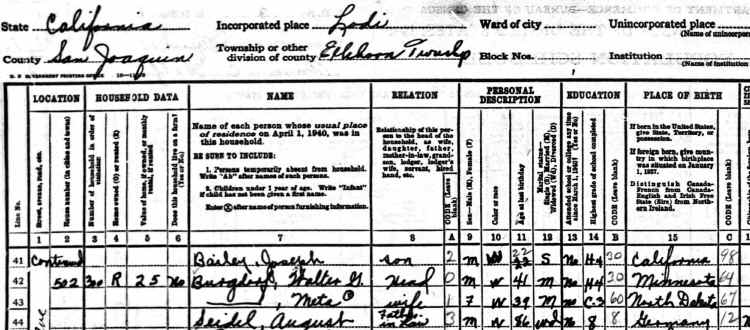 State California Incorporated place Lodi Ward of city Unincorporated place
(Name of unincorpor
County San Joaquin Township or other division of county Elkhorn Township Block Nos. Institution
(Name of institution
LOCATION HOUSEHOLD DATA NAME RELATION PERSONAL DESCRIPTION EDUCATION PLACE OF BIRTH
Line No.
Street, avenue, road, etc.
House number (in cities and towns)
Number of household in order of visitation
Home owned (O) or rented (R)
Value of home, if owned, or monthly rental, if rented
Does this household live on a farm? (Yes or No)
Name of each person whose usual place of residence on April 1, 1940, was in this household.
BE SURE TO INCLUDE:
1. Persons temporarily absent from household. Write "Ab" after names of such persons.
2. Children under 1 year of age. Write "Infant" if child has not been given a first name.
Enter ⓧ after name of person furnishing information.
Relationship of this person to the head of the household, as wife, daughter, father, mother-in-law, grandson, lodger, lodger's wife, servant, hired hand, etc.
CODE (Leave blank)
Sex—Male (M), Female (F)
Color or race
Age at last birthday
Marital status—Single (S), Married (M), Widowed (Wd), Divorced (D)
Attended school or college any time since March 1, 1940? (Yes or No)
Highest grade of school completed
CODE (Leave blank)
If born in the United States, give State, Territory, or possession.
If foreign born, give country in which birthplace was situated on January 1, 1937.
Distinguish Canada-French from Canada-English and Irish Free State (Eire) from Northern Ireland.
CODE (Leave blank)
1 2 3 4 5 6 7 8 A 9 10 11 12 13 14 B 15 C
41 Contnued Bailey, Joseph son 2 M W 22 S No H4 30 California 98
42 502 300 R 25 No Burgdorf, Walter G. Head 0 M W 41 M no H4 30 Minnesota 64
43 ———, Meta wife 1 F W 39 M no C-3 60 North Dakota 67
44 Seidel, August Father in law 3 M W 86 wd no 8 8 Germany 12